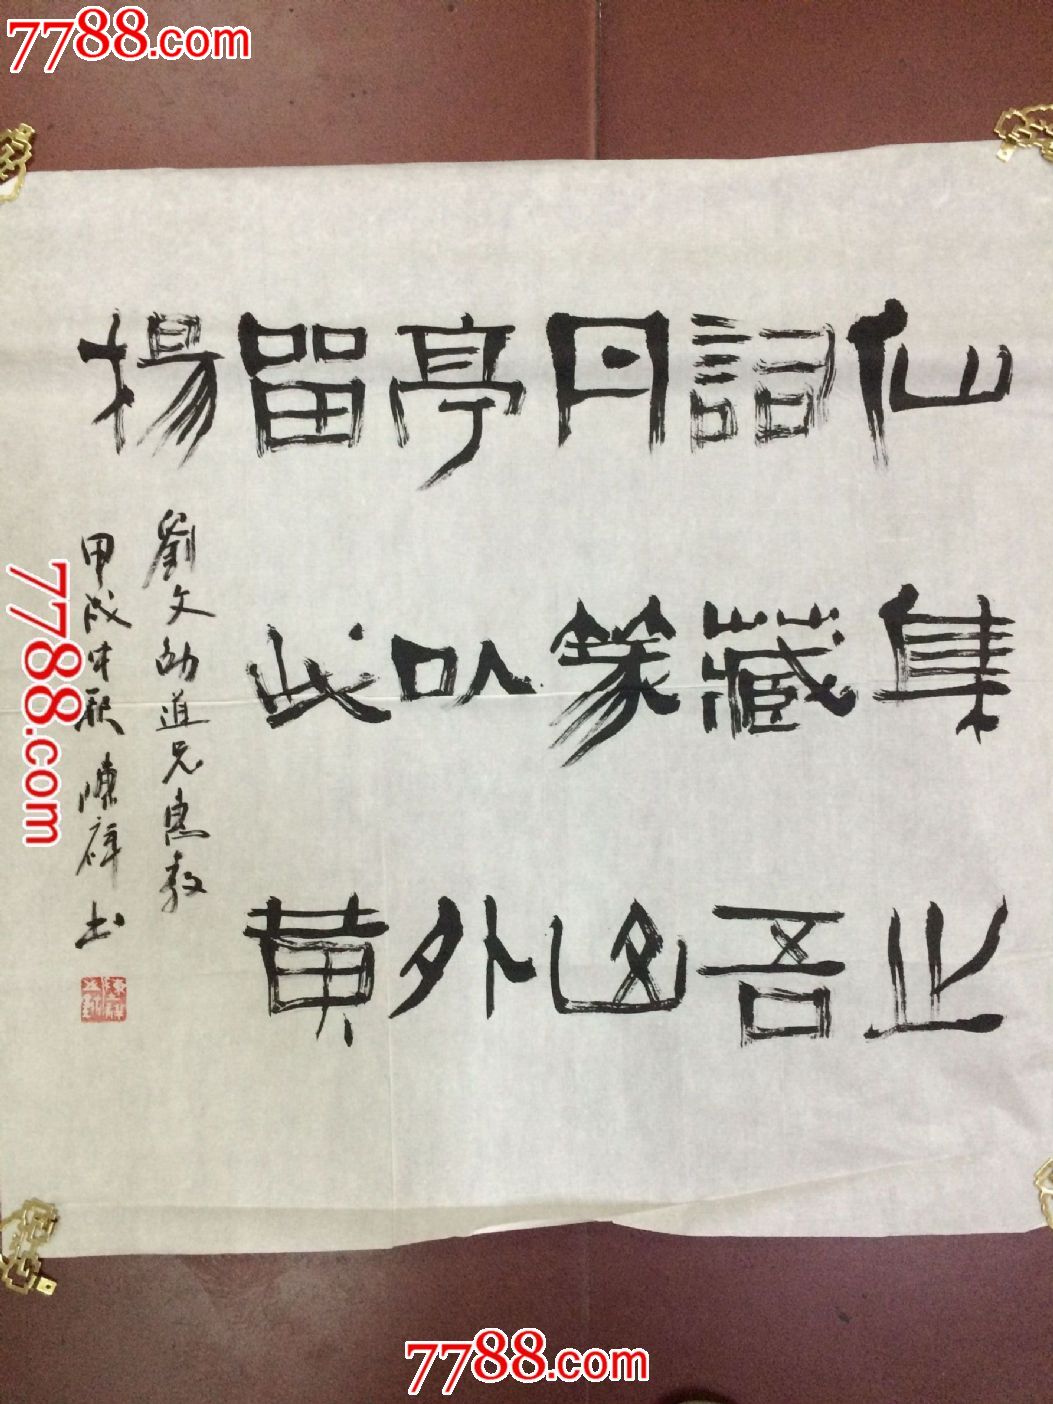 7788.com
仙集之
詞藏吾
丹篆
亭以外
留此黃
揚
劉文道兄惠教
甲戌秋 陳祥书
7788.com
7788.com